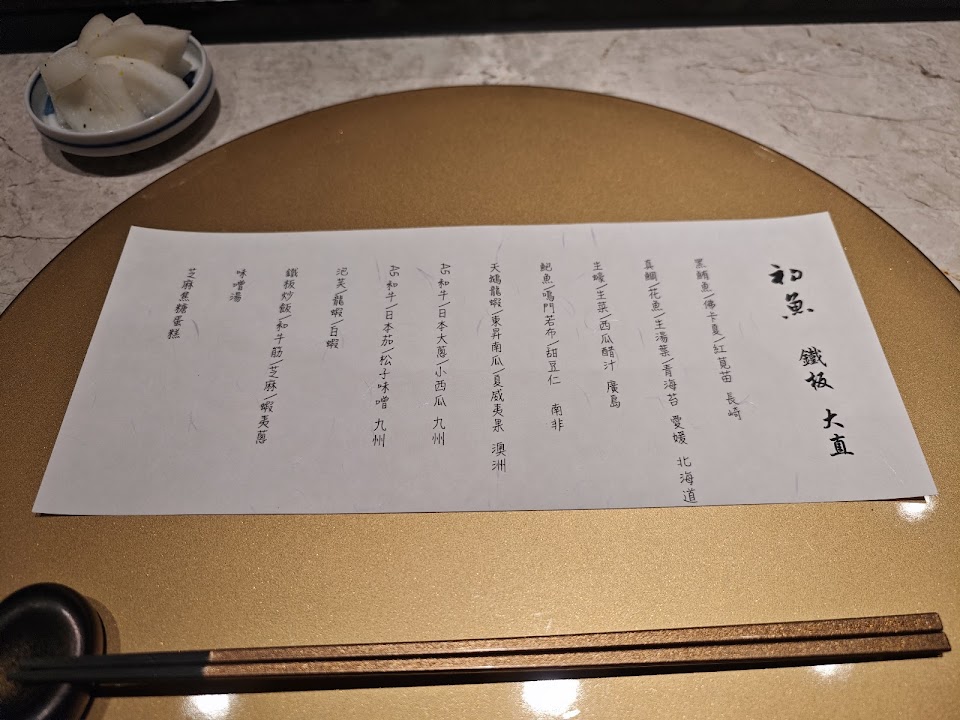 初魚 鐵板 大直
黑鮪魚/佛卡夏/紅莧苗 長崎
真鯛/花魚/生湯葉/青海苔 愛媛 北海道
生蠔/生菜/西瓜醋汁 廣島
鮑魚/鳴門若布/甜豆仁 南非
天鵝龍蝦/東昇南瓜/夏威夷果 澳洲
A5和牛/日本大蔥/小西瓜 九州
A5和牛/日本茄/松子味噌 九州
泡芙/龍蝦/白蝦
鐵板炒飯/和牛筋/芝麻/蝦夷蔥
味噌湯
芝麻焦糖蛋糕